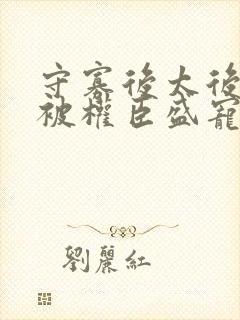 守寡後太後
被權臣盛寵
劉麗紅